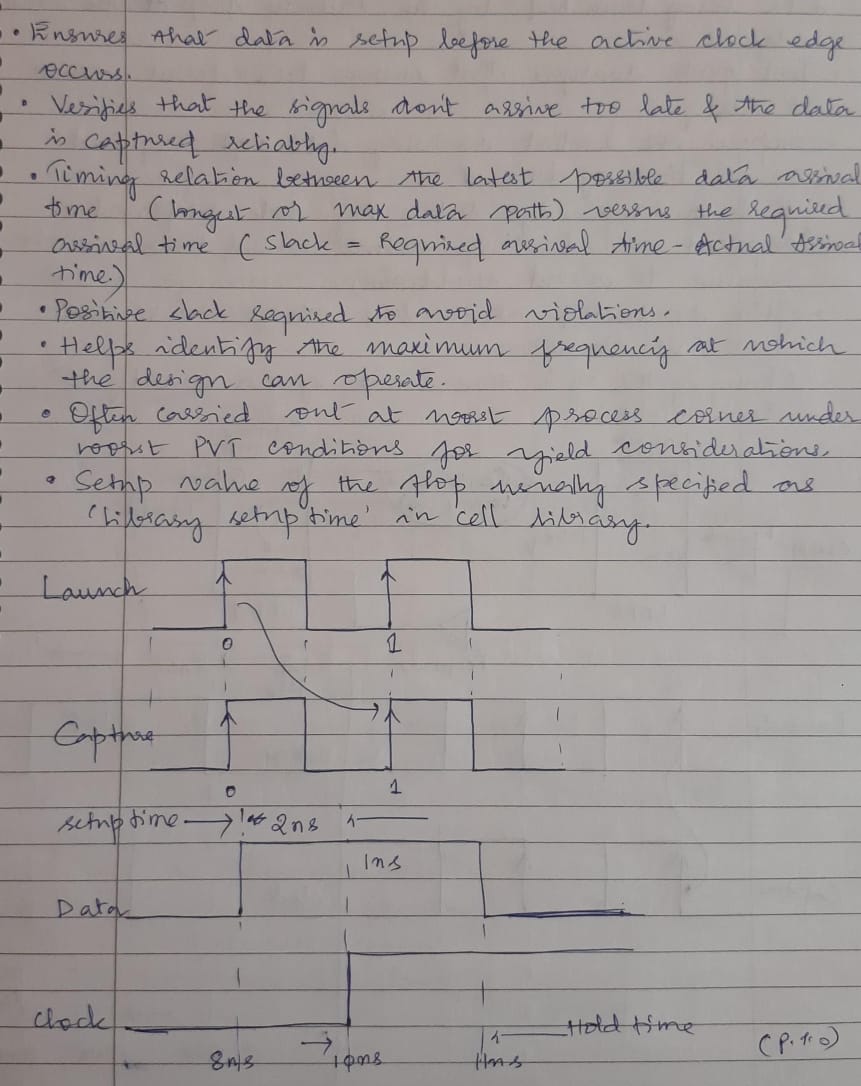 • Ensures that data is setup before the active clock edge
occurs.
• Verifies that the signals don't arrive too late & the data
is captured reliably.
• Timing relation between the latest possible data arrival
time (longest or max data path) versus the required
arrival time (slack = Required arrival time - Actual Arrival
time.)
• Positive slack required to avoid violations.
• Helps identify the maximum frequency at which
the design can operate.
• Often carried out at worst process corner under
worst PVT conditions for yield considerations.
• Setup value of the flop usually specified as
'Library setup time' in cell library.
Launch
0 1
Capture
0 1
setup time 2ns
1ns
Data
Clock
Hold time
8ns 10ms 11ns
(P.T.O)